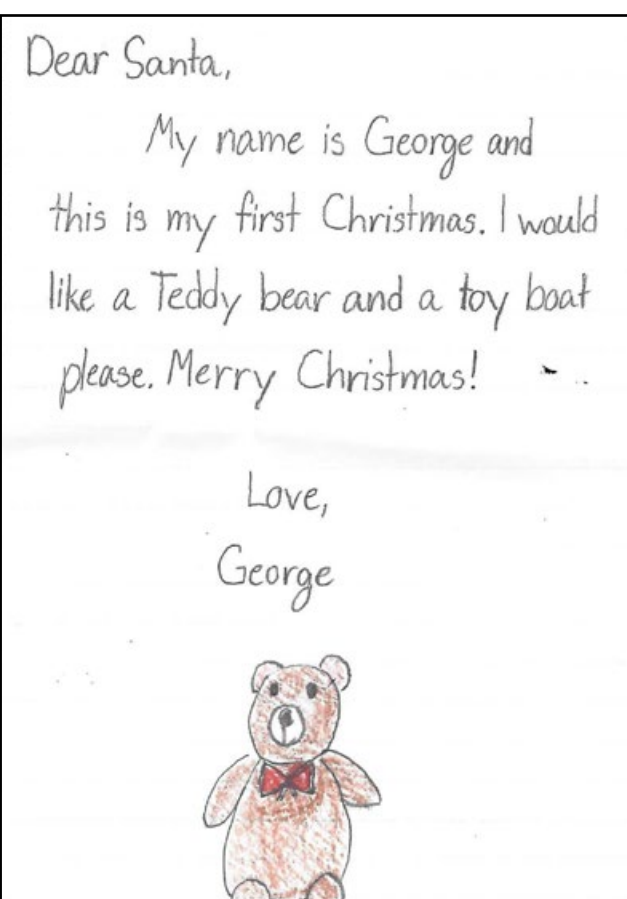 Dear Santa,
My name is George and
this is my first Christmas. I would
like a Teddy bear and a toy boat
please. Merry Christmas!
Love,
George